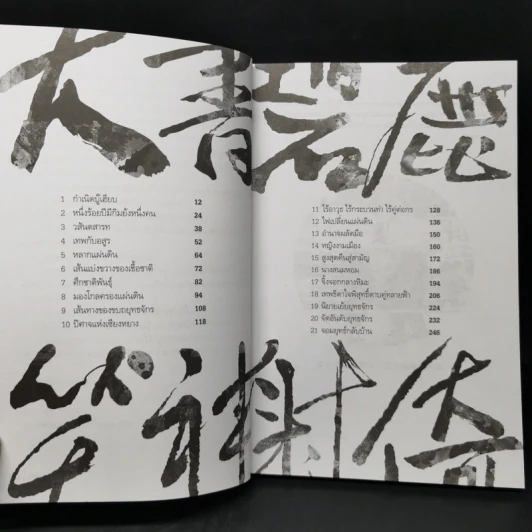 天書碧鹿
1 กำเนิดบู๊เฮียบ 12
2 หนึ่งร้อยปีมีกิมย้งหนึ่งคน 24
3 วสันตสารท 38
4 เทพกับอสูร 52
5 หลากแผ่นดิน 64
6 เส้นแบ่งขวางของเชื้อชาติ 72
7 ศึกชาติพันธุ์ 82
8 มองโกลครองแผ่นดิน 94
9 เส้นทางของขบถยุทธจักร 108
10 ปีศาจแห่งเซียงหยาง 118
11 ไร้อาวุธ ไร้กระบวนท่า ไร้คู่ต่อกร 128
12 ไฟเปลี่ยนแผ่นดิน 136
13 อำนาจผลัดมือ 150
14 หญิงงามเมือง 160
15 สูงสุดคืนสู่สามัญ 172
16 นางสนมหอม 186
17 จิ้งจอกกลางหิมะ 194
18 เทพธิดาใจพิสุทธิ์ดาบคู่ทลายฟ้า 206
19 นิยายเย้ยยุทธจักร 224
20 จัดอันดับยุทธจักร 232
21 จอมยุทธ์กลับบ้าน 246
笑神射倚